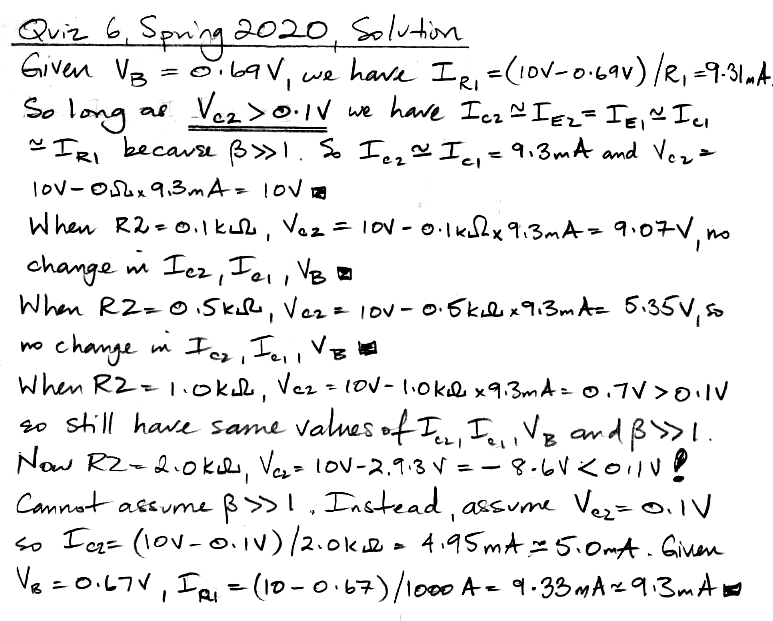 Quiz 6, Spring 2020, Solution
Given V_B = 0.69V, we have I_R1 = (10V-0.69V)/R_1 = 9.31mA.
So long as V_C2 > 0.1V we have I_C2 ≃ I_E2 = I_E1 ≃ I_C1
≃ I_R1 because β>>1. So I_C2 ≃ I_C1 = 9.3mA and V_C2 =
10V-0Ωx9.3mA = 10V
When R2=0.1kΩ, V_C2 = 10V-0.1kΩx9.3mA = 9.07V, no
change in I_C2, I_C1, V_B
When R2=0.5kΩ, V_C2 = 10V-0.5kΩx9.3mA= 5.35V, so
no change in I_C2, I_C1, V_B
When R2=1.0kΩ, V_C2 = 10V-1.0kΩx9.3mA = 0.7V > 0.1V
so still have same values of I_C2, I_C1, V_B and β>>1.
Now R2=2.0kΩ, V_C2 = 10V-2.9.3V = -8.6V < 0.1V !
Cannot assume β>>1. Instead, assume V_C2 = 0.1V
so I_C2 = (10V-0.1V)/2.0kΩ = 4.95mA ≃ 5.0mA. Given
V_B = 0.67V, I_R1 = (10-0.67)/1000 A = 9.33mA ≃ 9.3mA